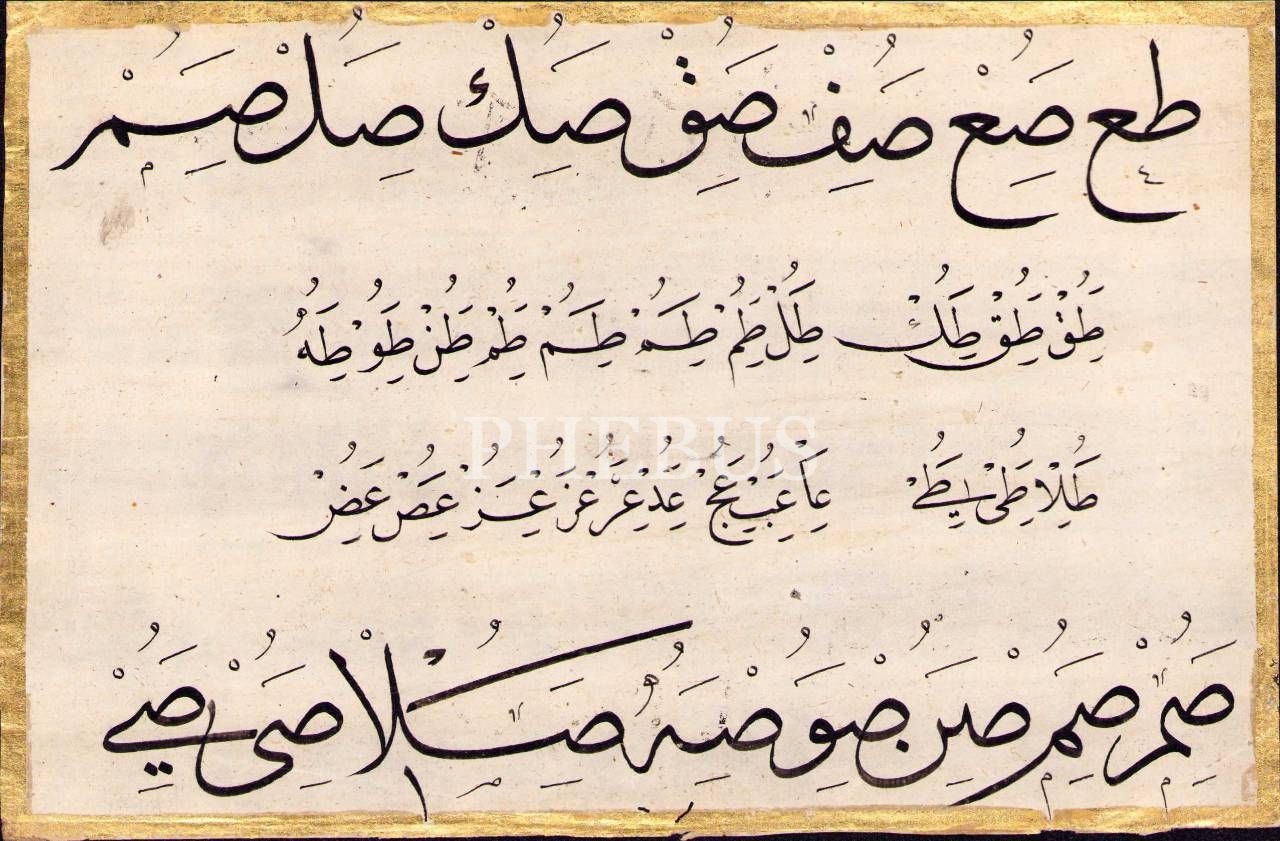 طع صع صف صق صك صل صم
طق طق طك طل طم طم طم طم طن طو طه
PHEBUS
طلا طى طے عا عب عج عد عر عز عز عص عض
صم صم صن صو صه صلا صى صے